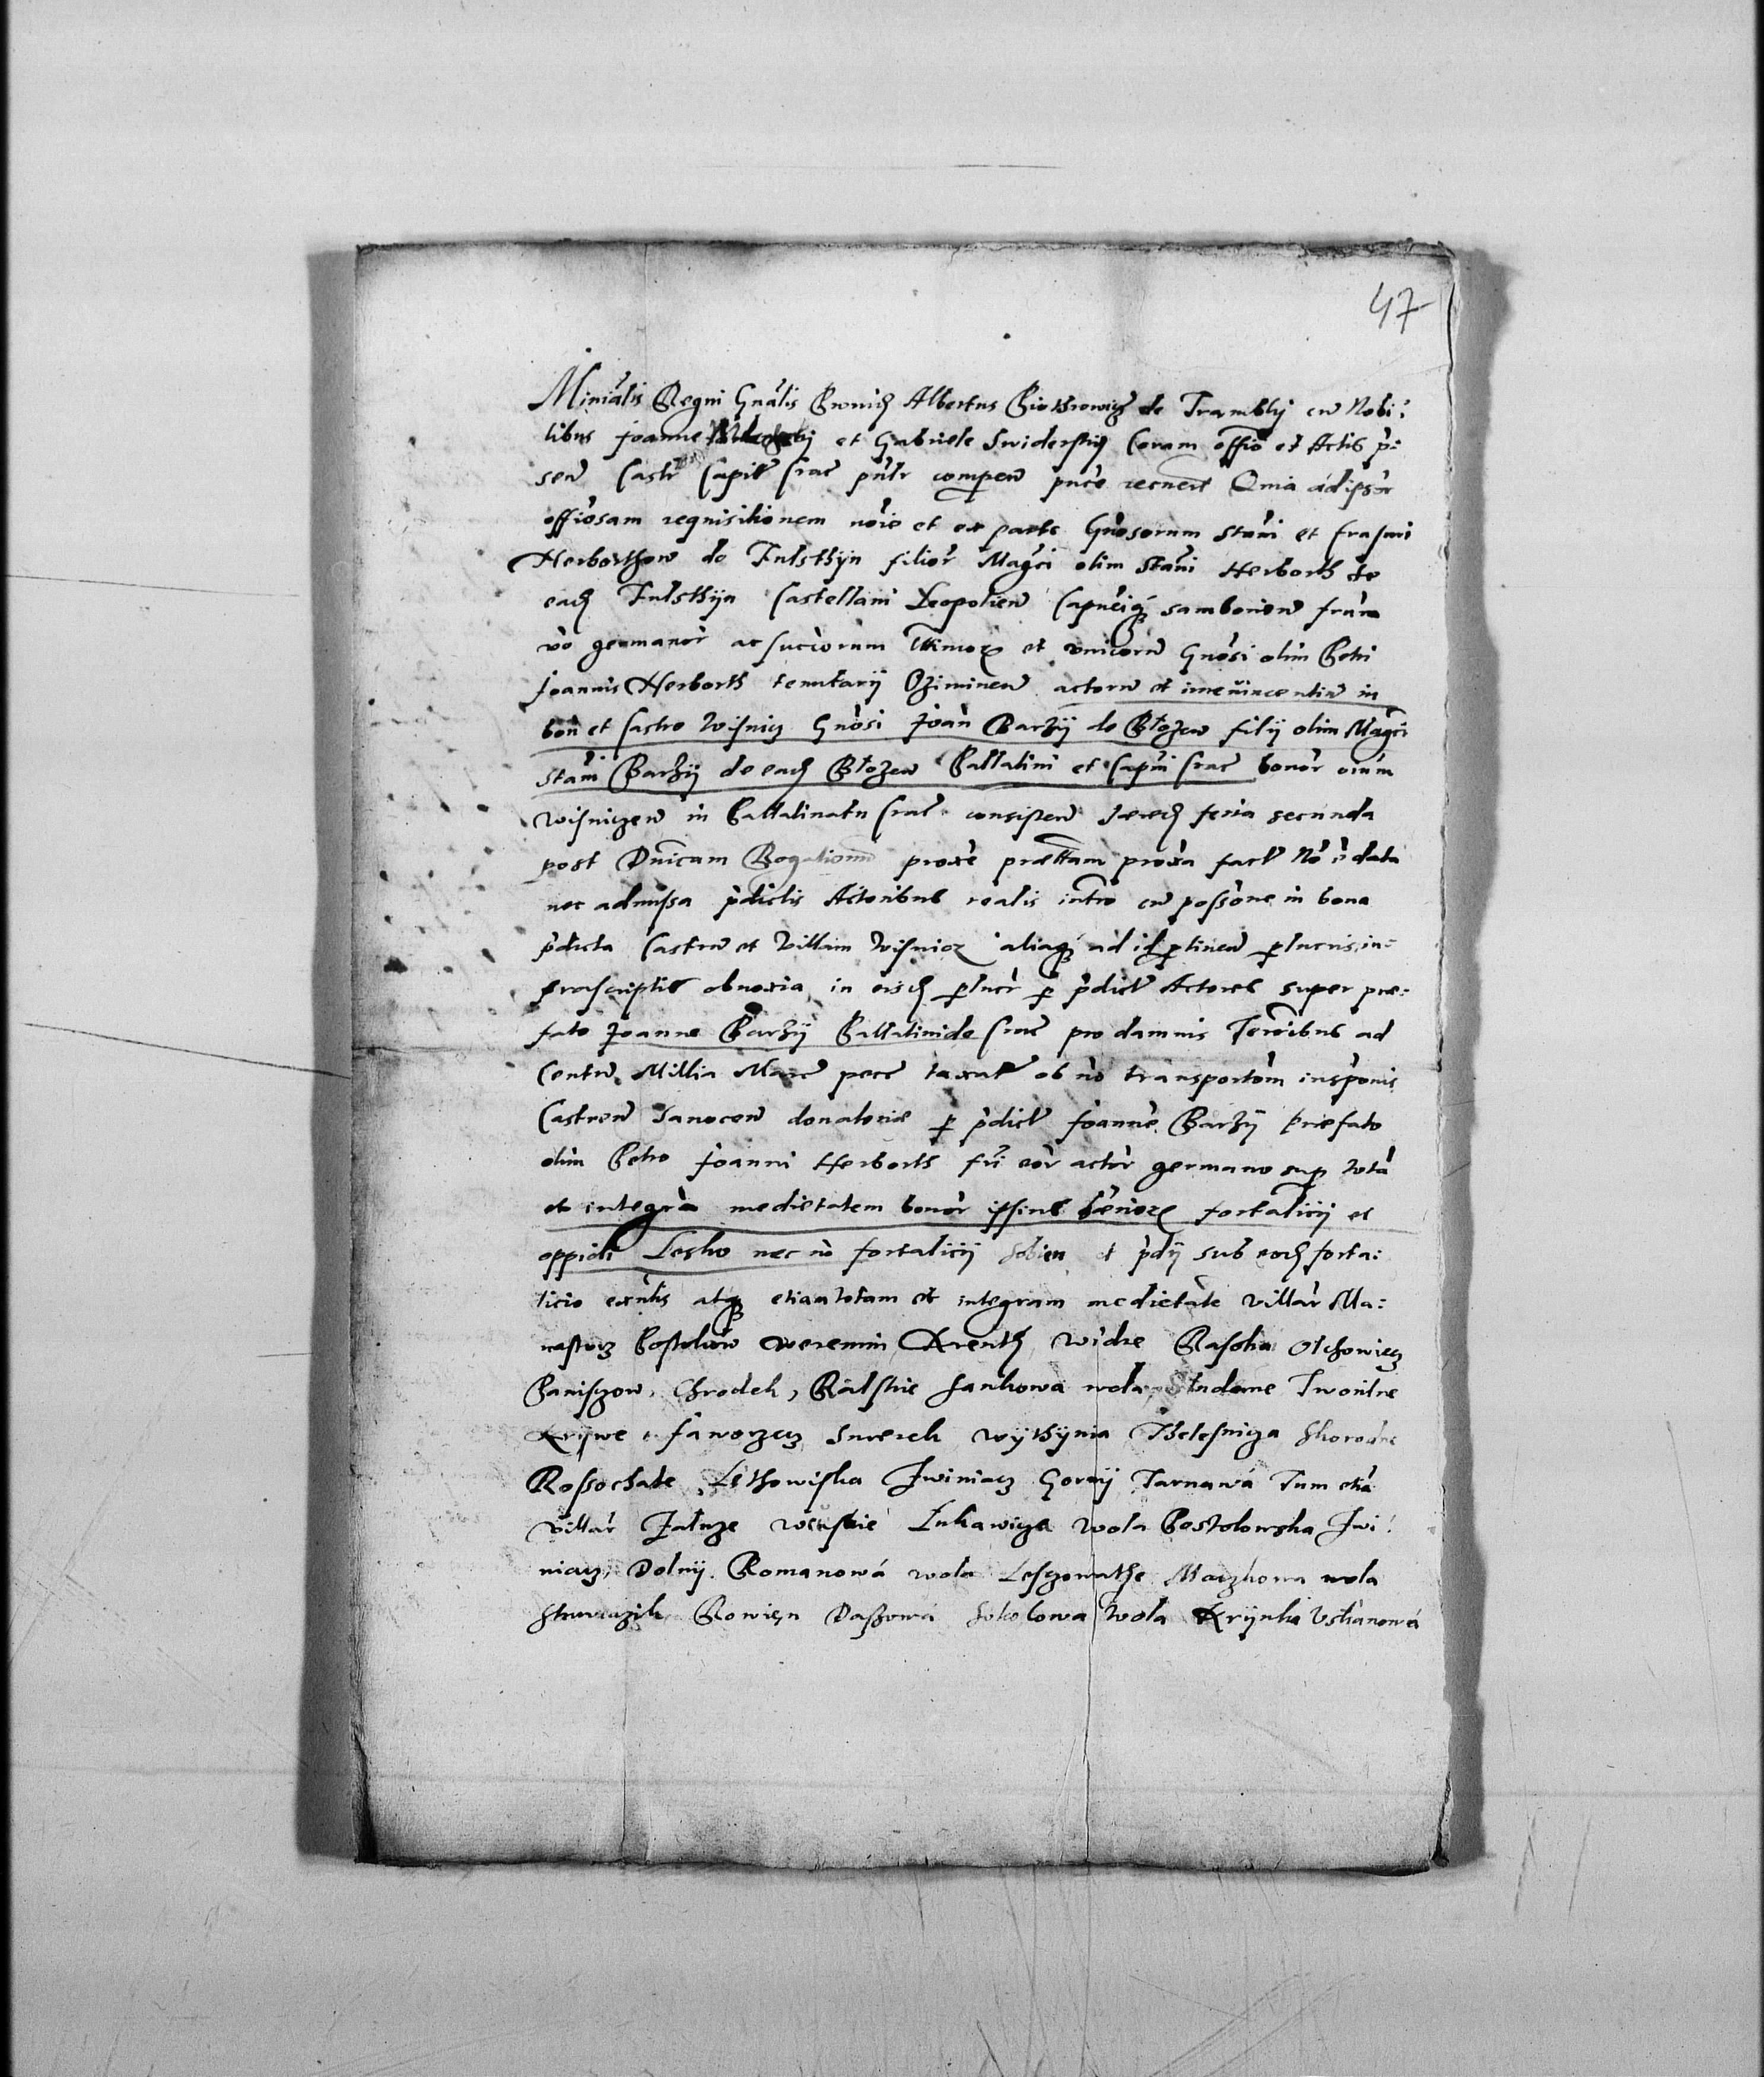 47
Miniãlis Regni Gnãlis Prouid Albertus Piothrowicz de Trambky cũ Nobi:
libus Joanne et Gabriele Swiderskij Coram offio et Actis p̃:
sen Castr Capit Crac pñtr comparen puce recnert Quia ad ipsor
offiosam requisitionem noie et ex parte Gnosorum Stani et frasmi
Herborthow de Fulsthyn filior Magci olim Stani Herborth de
ead Fulsthyn Castellani Leopolien Capneiq samborien fratru
vo germanor ac succorum et vnicoru Gnosi olim Petri
Joannis Herborth tenutarij Oziminen actoru et in
bon et Castro Wisnicz Gnosi Joan Barzij de Błozew filij olim Magci
Stani Barzij de ead Błozew Pallatini et Capni Crac bonor oium
Wisniczen in Pallatinatu Crac consisten feria secunda
post Dnicam Rogationu proxe prættam proxa fact No data
nec admissa pdictis Actoribus realis intro cu possone in bona
pdicta Castru et Villam Wisnicz aliaq ad id ptinen p lucris in:
prascriptis obnoxia in eisd plucr p pdict Actores super præ:
fato Joanne Barzij Pallatinide Crac pro damnis Terribus ad
Centu Millia Marc pecc taxat ob no transportom insponis
Castren Sanocen donatoriæ p pdict Joanne Barzij Præfato
olim Petro Joanni Herborth fri eor actor germano sup tota
et integra medietatem bonor ipsius fortalicij et
oppidi Lesko nec no fortalicij Sobien et pdij sub eod forta:
licio exntis atq etiam totam et integram medietate villar Ma:
nasterz Postolow weremin Krenth widre Rasoha Olchowiecz
Paniszow Chrodek, Rałskie Jankowa wola, Studenne Twoilne
Krijwe Jaworzecz Smerek wythynia Thelesnicza Skorodne
Rossochate Lethowiska Zwiniacz Gornij Tarnawa Tum etiã
villar Załuze Lukawicza wola Postolowska Zwi:
niacz, Dolnij Romanowa wola Lesczowathe Maczkowa wola
Rowien Daszowa Sokolowa Wola Krijnka Vstianowa